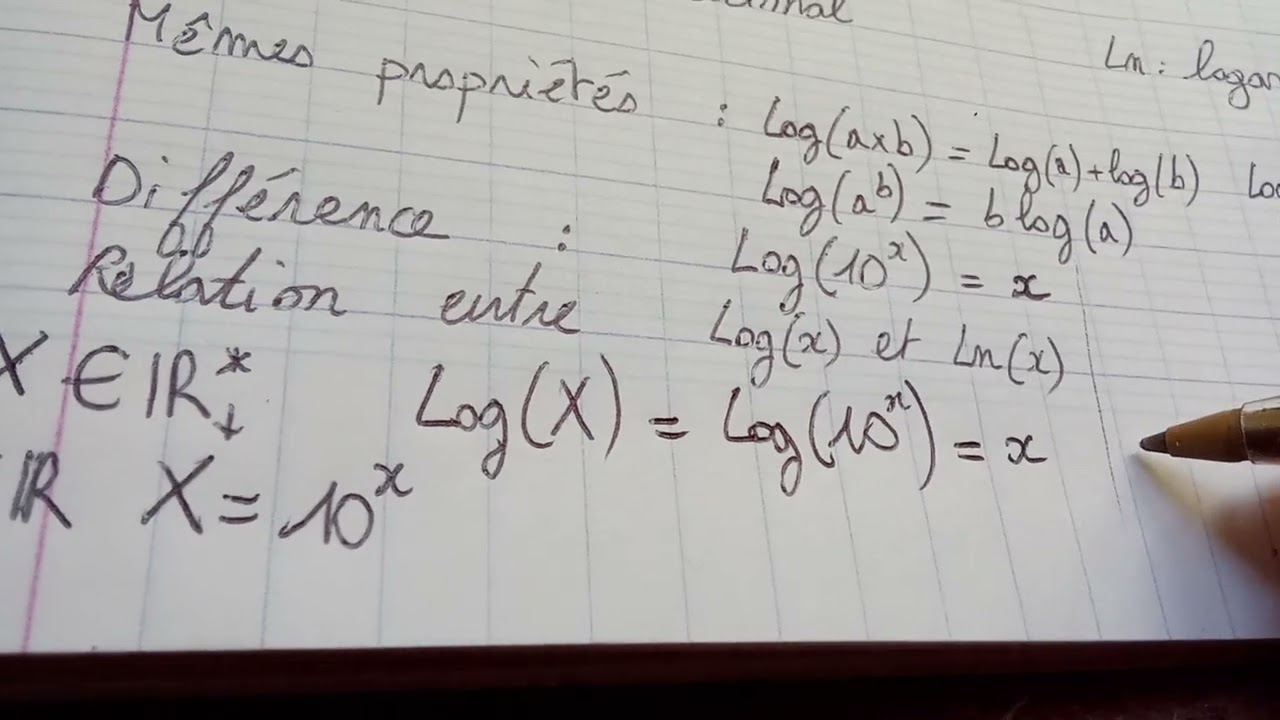 Ln :
Mêmes propriétés : Log(a×b) = Log(a)+log(b)
Log(a^b) = b log(a)
Différence : Log(10^x) = x
Relation entre Log(x) et Ln(x)
X ∈ IR*+ Log(X) = Log(10^x) = x
IR X = 10^x